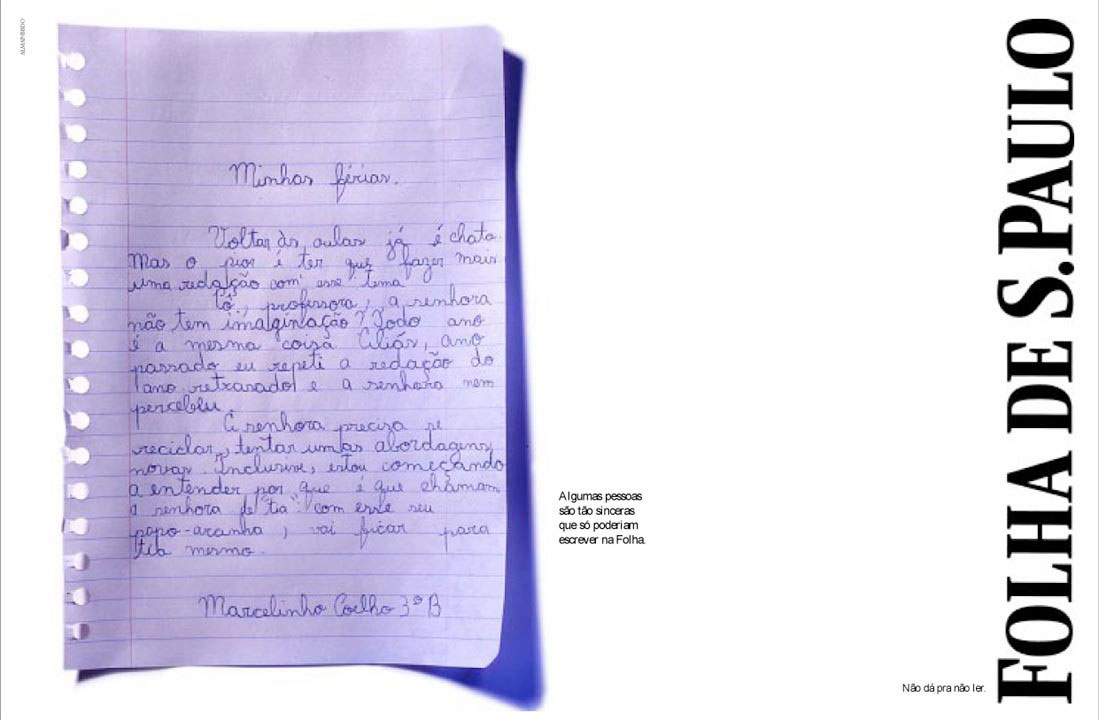 ALMAP/BBDO
Minhas férias.
Voltar às aulas já é chato.
Mas o pior é ter que fazer mais
uma redação com esse tema.
Tô, professora, a senhora
não tem imaginação? Todo ano
é a mesma coisa. Aliás, ano
passado eu repeti a redação do
ano retrasado e a senhora nem
percebeu.
A senhora precisa se
reciclar, tentar umas abordagens
novas. Inclusive, estou começando
a entender por que é que chamam
a senhora de "tia": com esse seu
papo-aranha, vai ficar para
tia mesmo.
Marcelinho Coelho 3º B
Algumas pessoas
são tão sinceras
que só poderiam
escrever na Folha.
Não dá pra não ler.
FOLHA DE S.PAULO